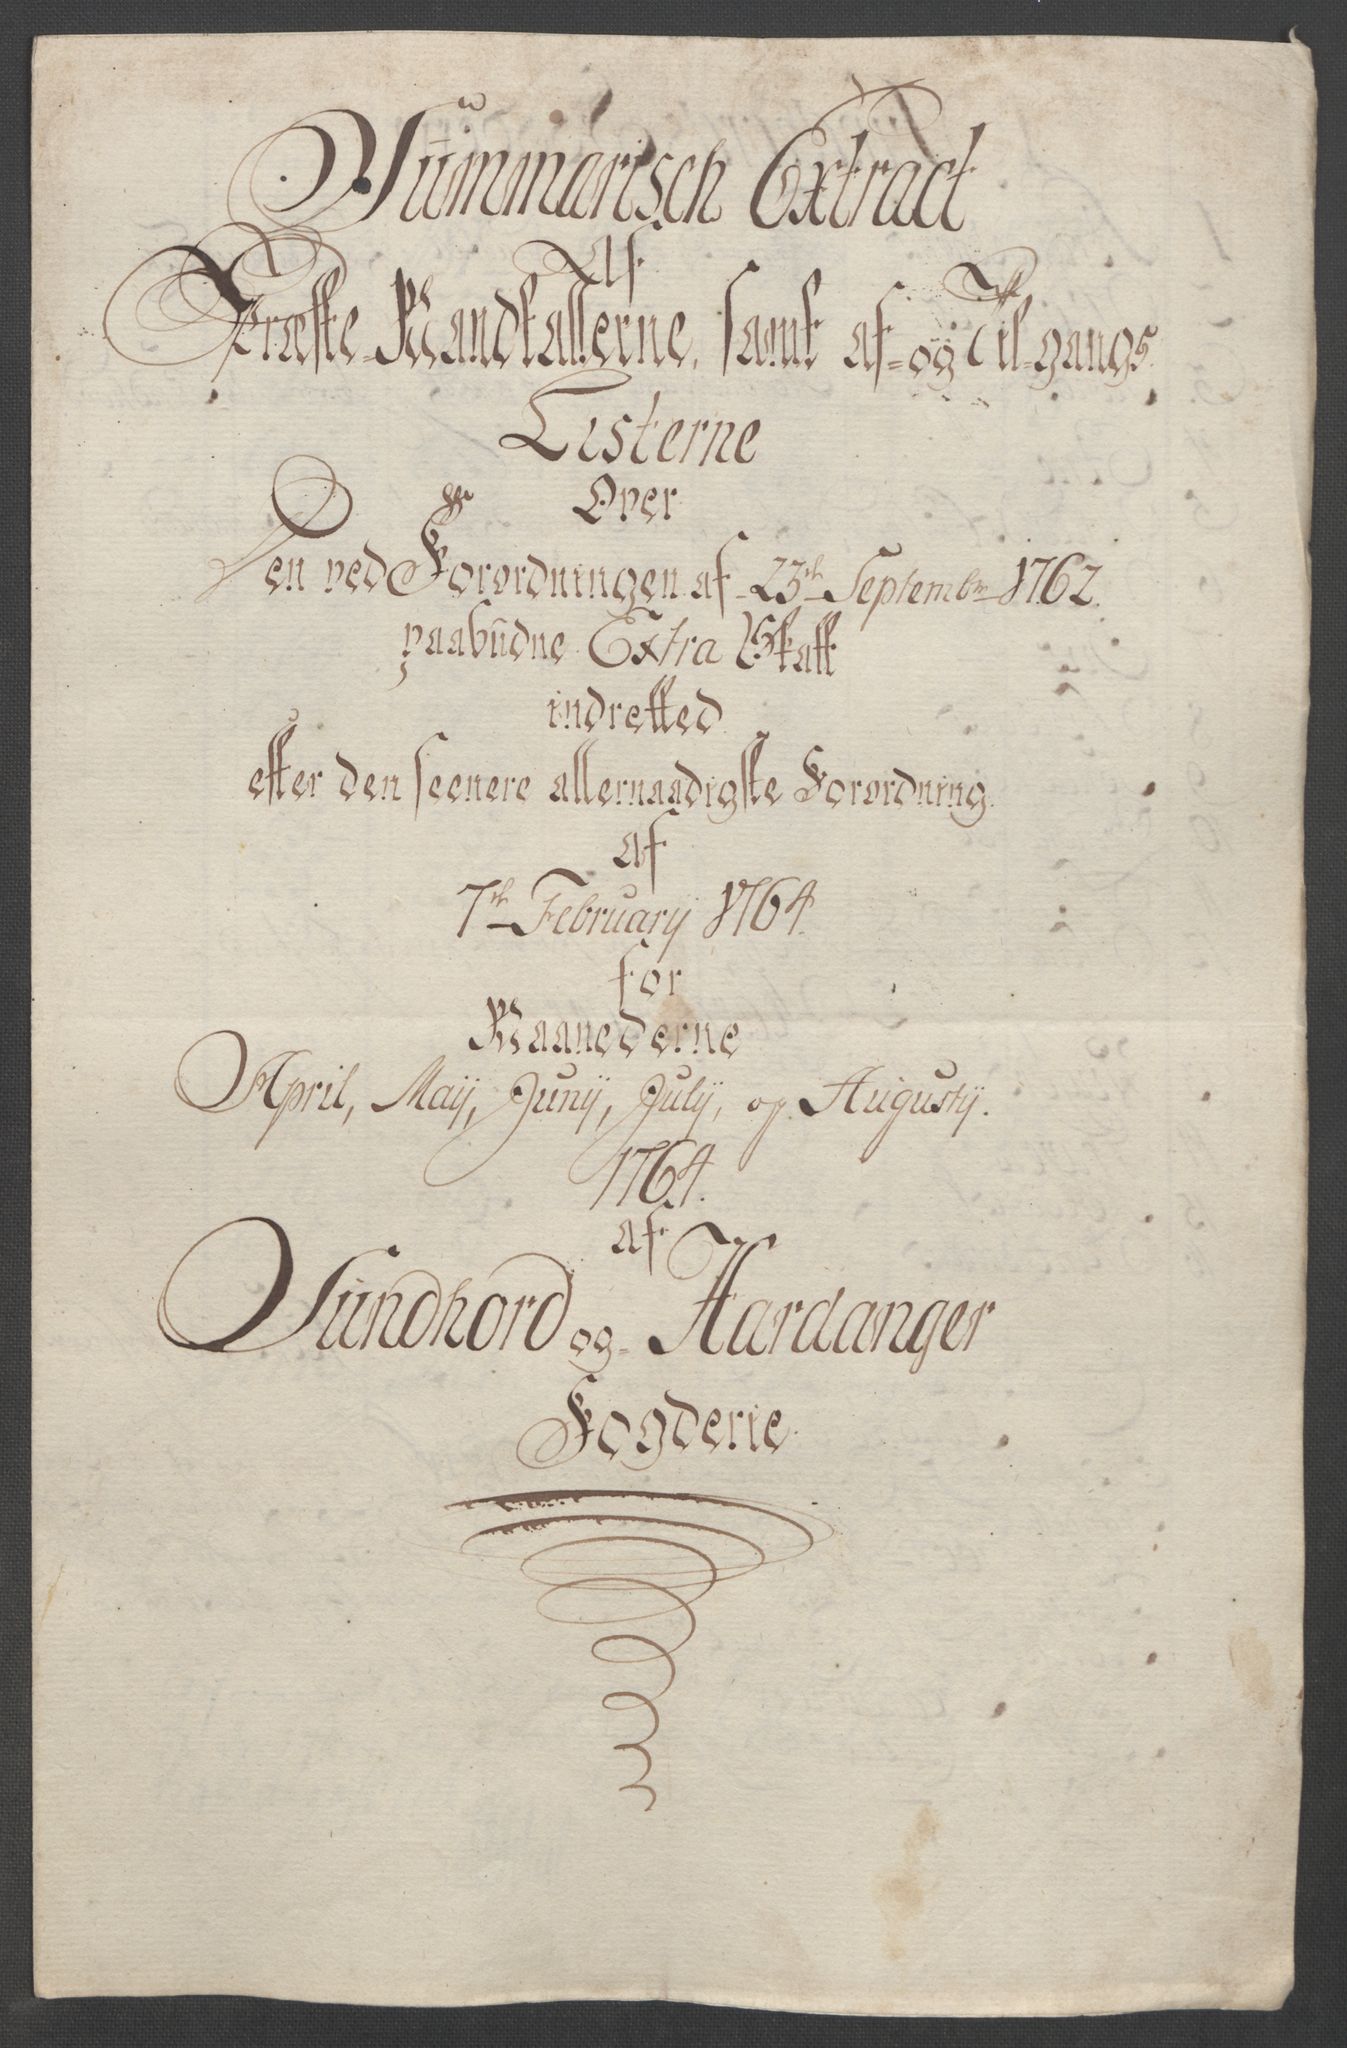 Summarisch Extract
Af
Præste-Mandtallerne, samt af- og Til-gangs
Listerne
Over
Den ved Forordningen af 23th Septembr 1762.
paabudne Extra Skatt
indretted
efter den seenere allernaadigste Forordning
af
7th February 1764.
for
Maanederne
April, Maij, Junij, Julij, og Augustij.
1764.
af
Sundhord og Hardanger
Fogderie